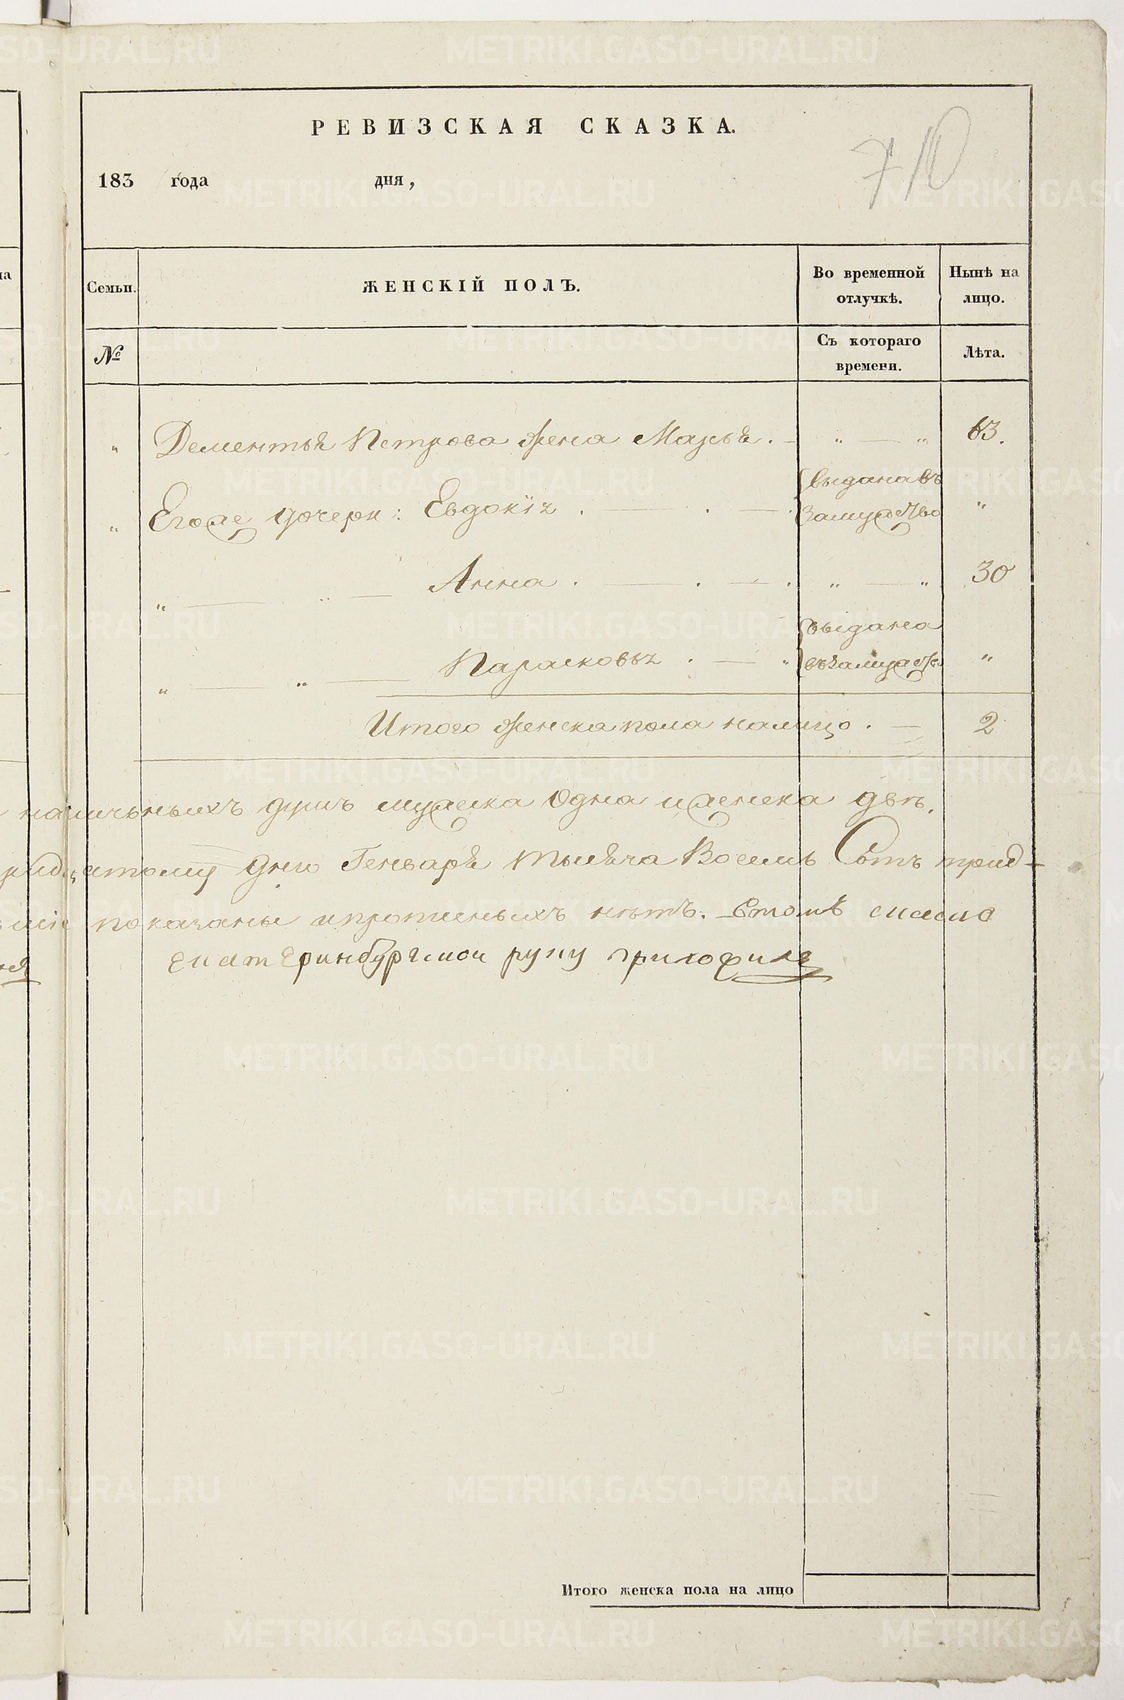 РЕВИЗСКАЯ СКАЗКА.
710
183 года дня,
Семьи. ЖЕНСКІЙ ПОЛЪ. Во временной отлучкѣ. Нынѣ на лицо.
№ Съ котораго времени. Лѣта.
„ Дементья Петрова жена Марья. „ — „ 63.
„ Егоже дочери: Евдокія выдана въ замужство „
„ „ Анна „ — „ 30
„ „ Парасковья выдана въ замужс „
Итого женска пола налицо. 2
наличныхъ душъ мужска одна и женска двѣ.
дцатому дню Генваря тысяча Восемь Сотъ трид-
показаны и прописныхъ нѣтъ. Втомъ
екатеринбургской руку приложил
Итого женска пола на лицо
METRIKI.GASO-URAL.RU